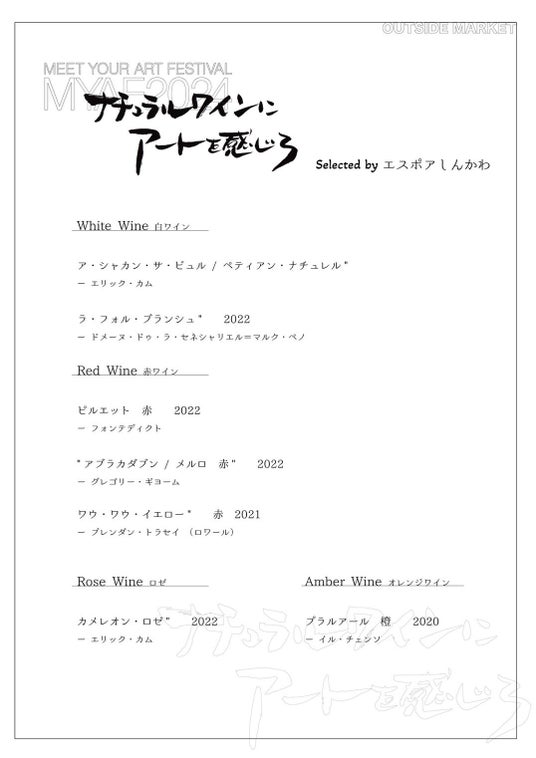 OUTSIDE MARKET
MEET YOUR ART FESTIVAL
MYAF2024
ナチュラルワインに
アートを感じろ
Selected by エスポアしんかわ
White Wine 白ワイン
ア・シャカン・サ・ビュル / ペティアン・ナチュレル"
− エリック・カム
ラ・フォル・ブランシュ" 2022
− ドメーヌ・ドゥ・ラ・セネシャリエル=マルク・ペノ
Red Wine 赤ワイン
ピルエット 赤 2022
− フォンテディクト
"アブラカダブン / メルロ 赤" 2022
− グレゴリー・ギヨーム
ワウ・ワウ・イエロー" 赤 2021
− ブレンダン・トラセイ （ロワール）
Rose Wine ロゼ
カメレオン・ロゼ" 2022
− エリック・カム
Amber Wine オレンジワイン
プラルアール 橙 2020
− イル・チェンソ
ナチュラルワインに
アートを感じろ